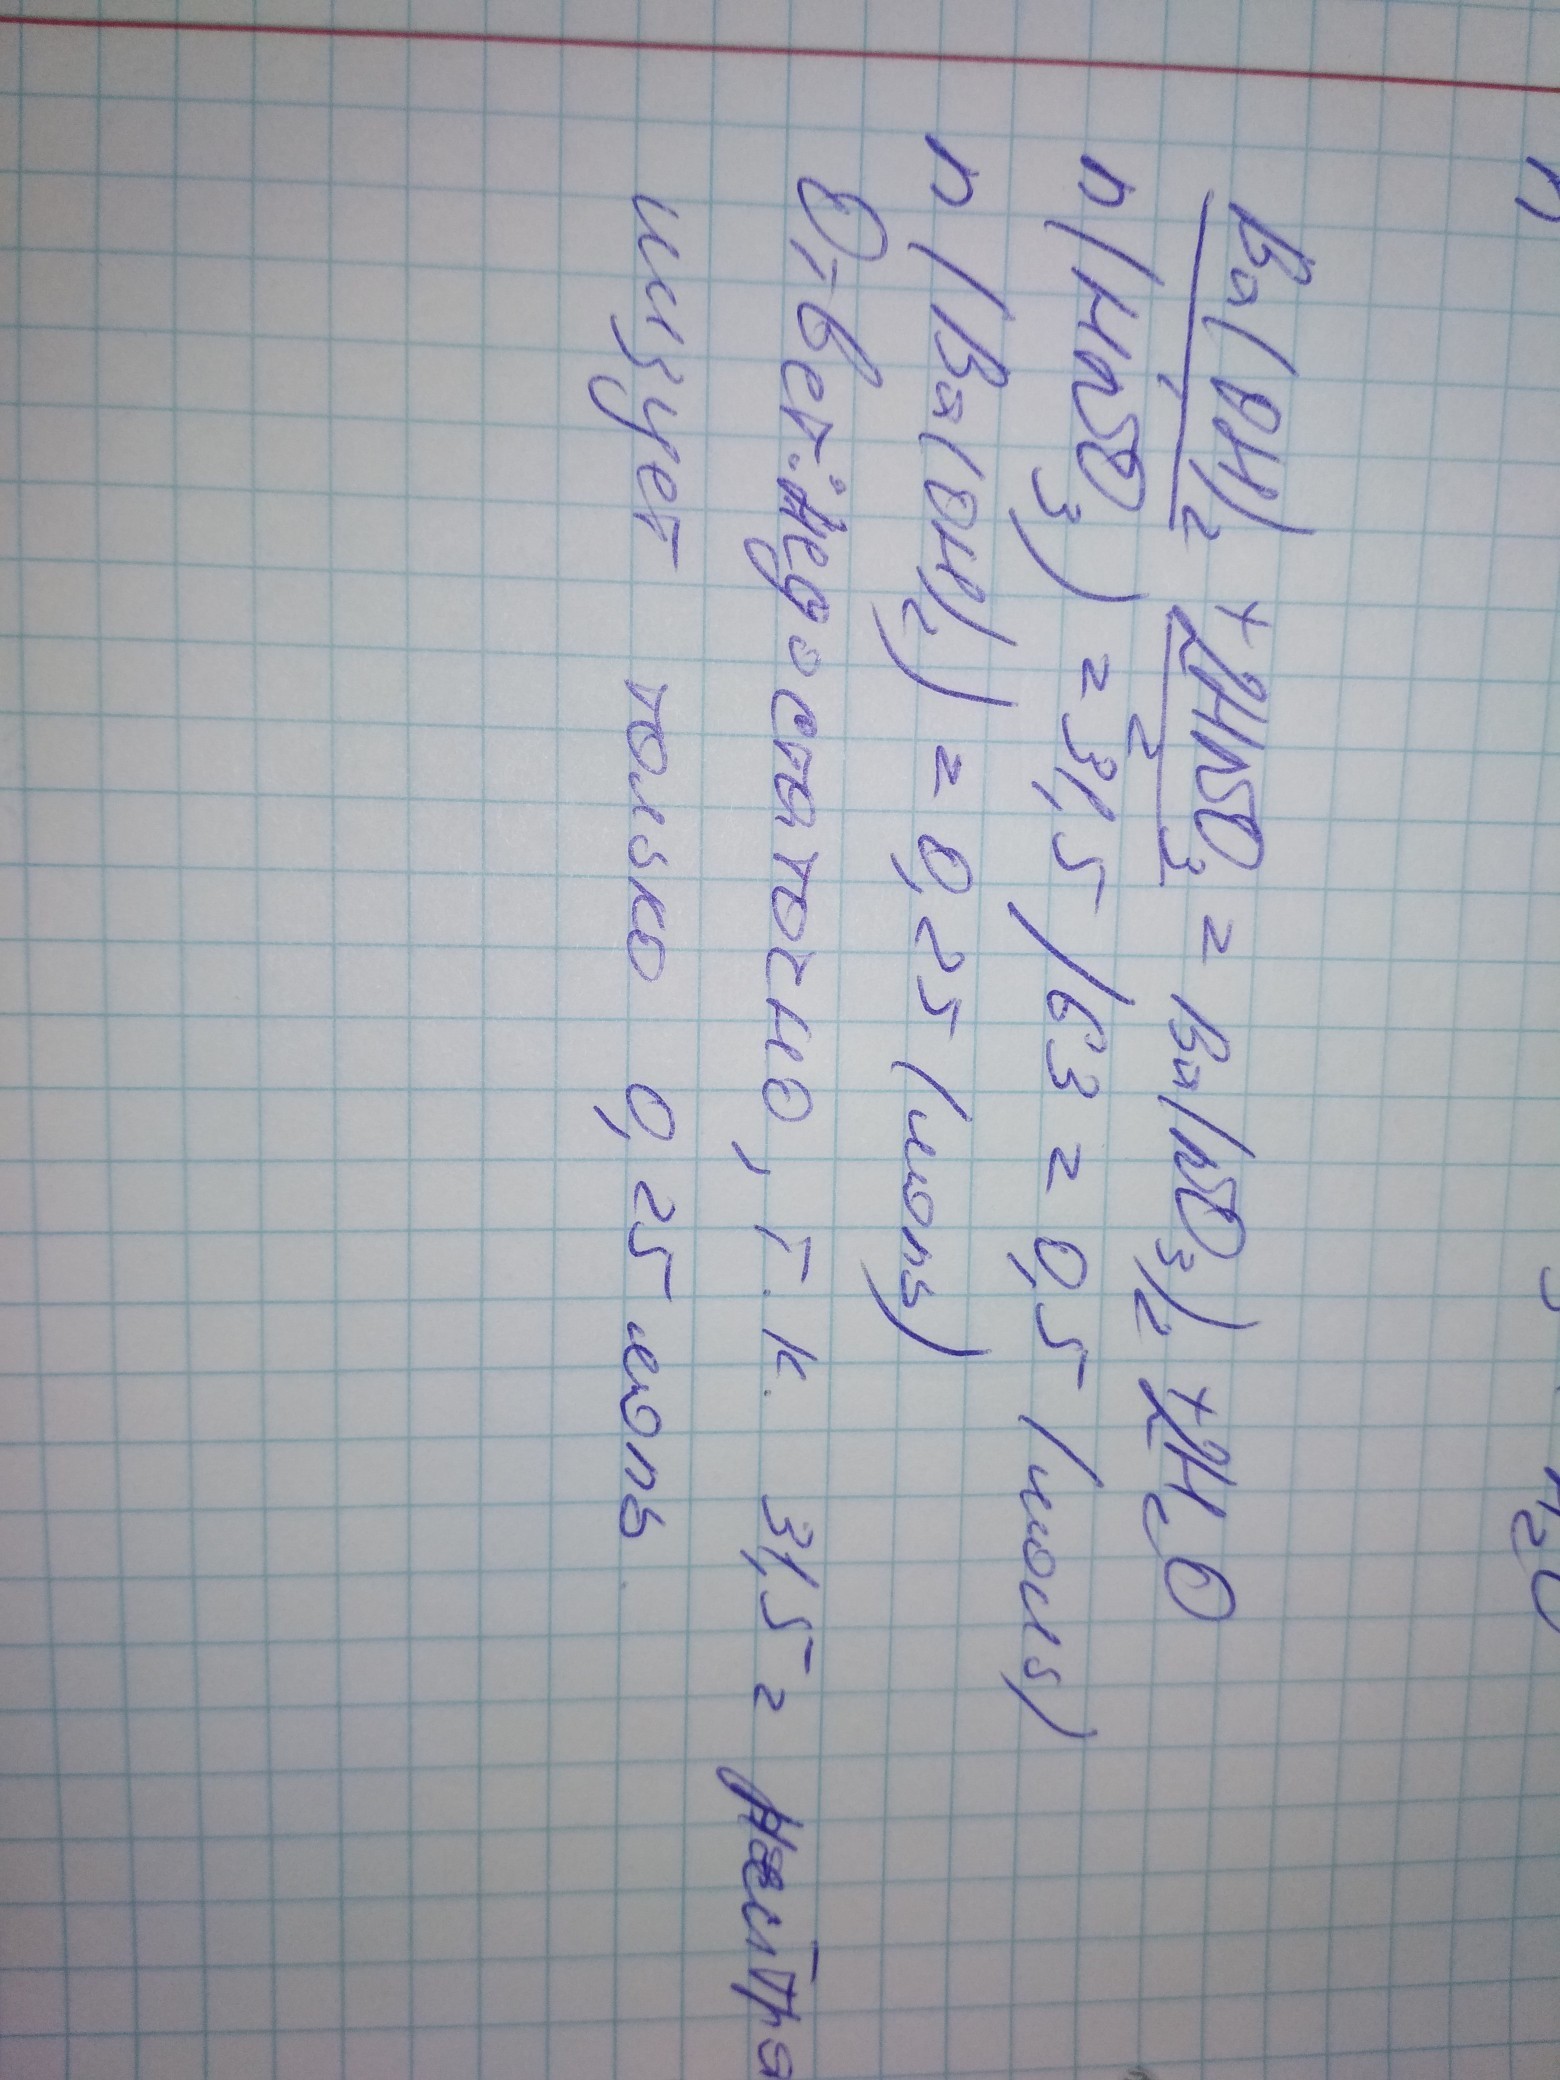 Ba(OH)₂ + 2HNO₃ = Ba(NO₃)₂ + 2H₂O
1 2
n(HNO₃) = 31,5/63 = 0,5 (моль)
n(Ba(OH)₂) = 0,25 (моль)
Ответ: недостаточно, т.к. 31,5 г нейтра
лизует только 0,25 моль.